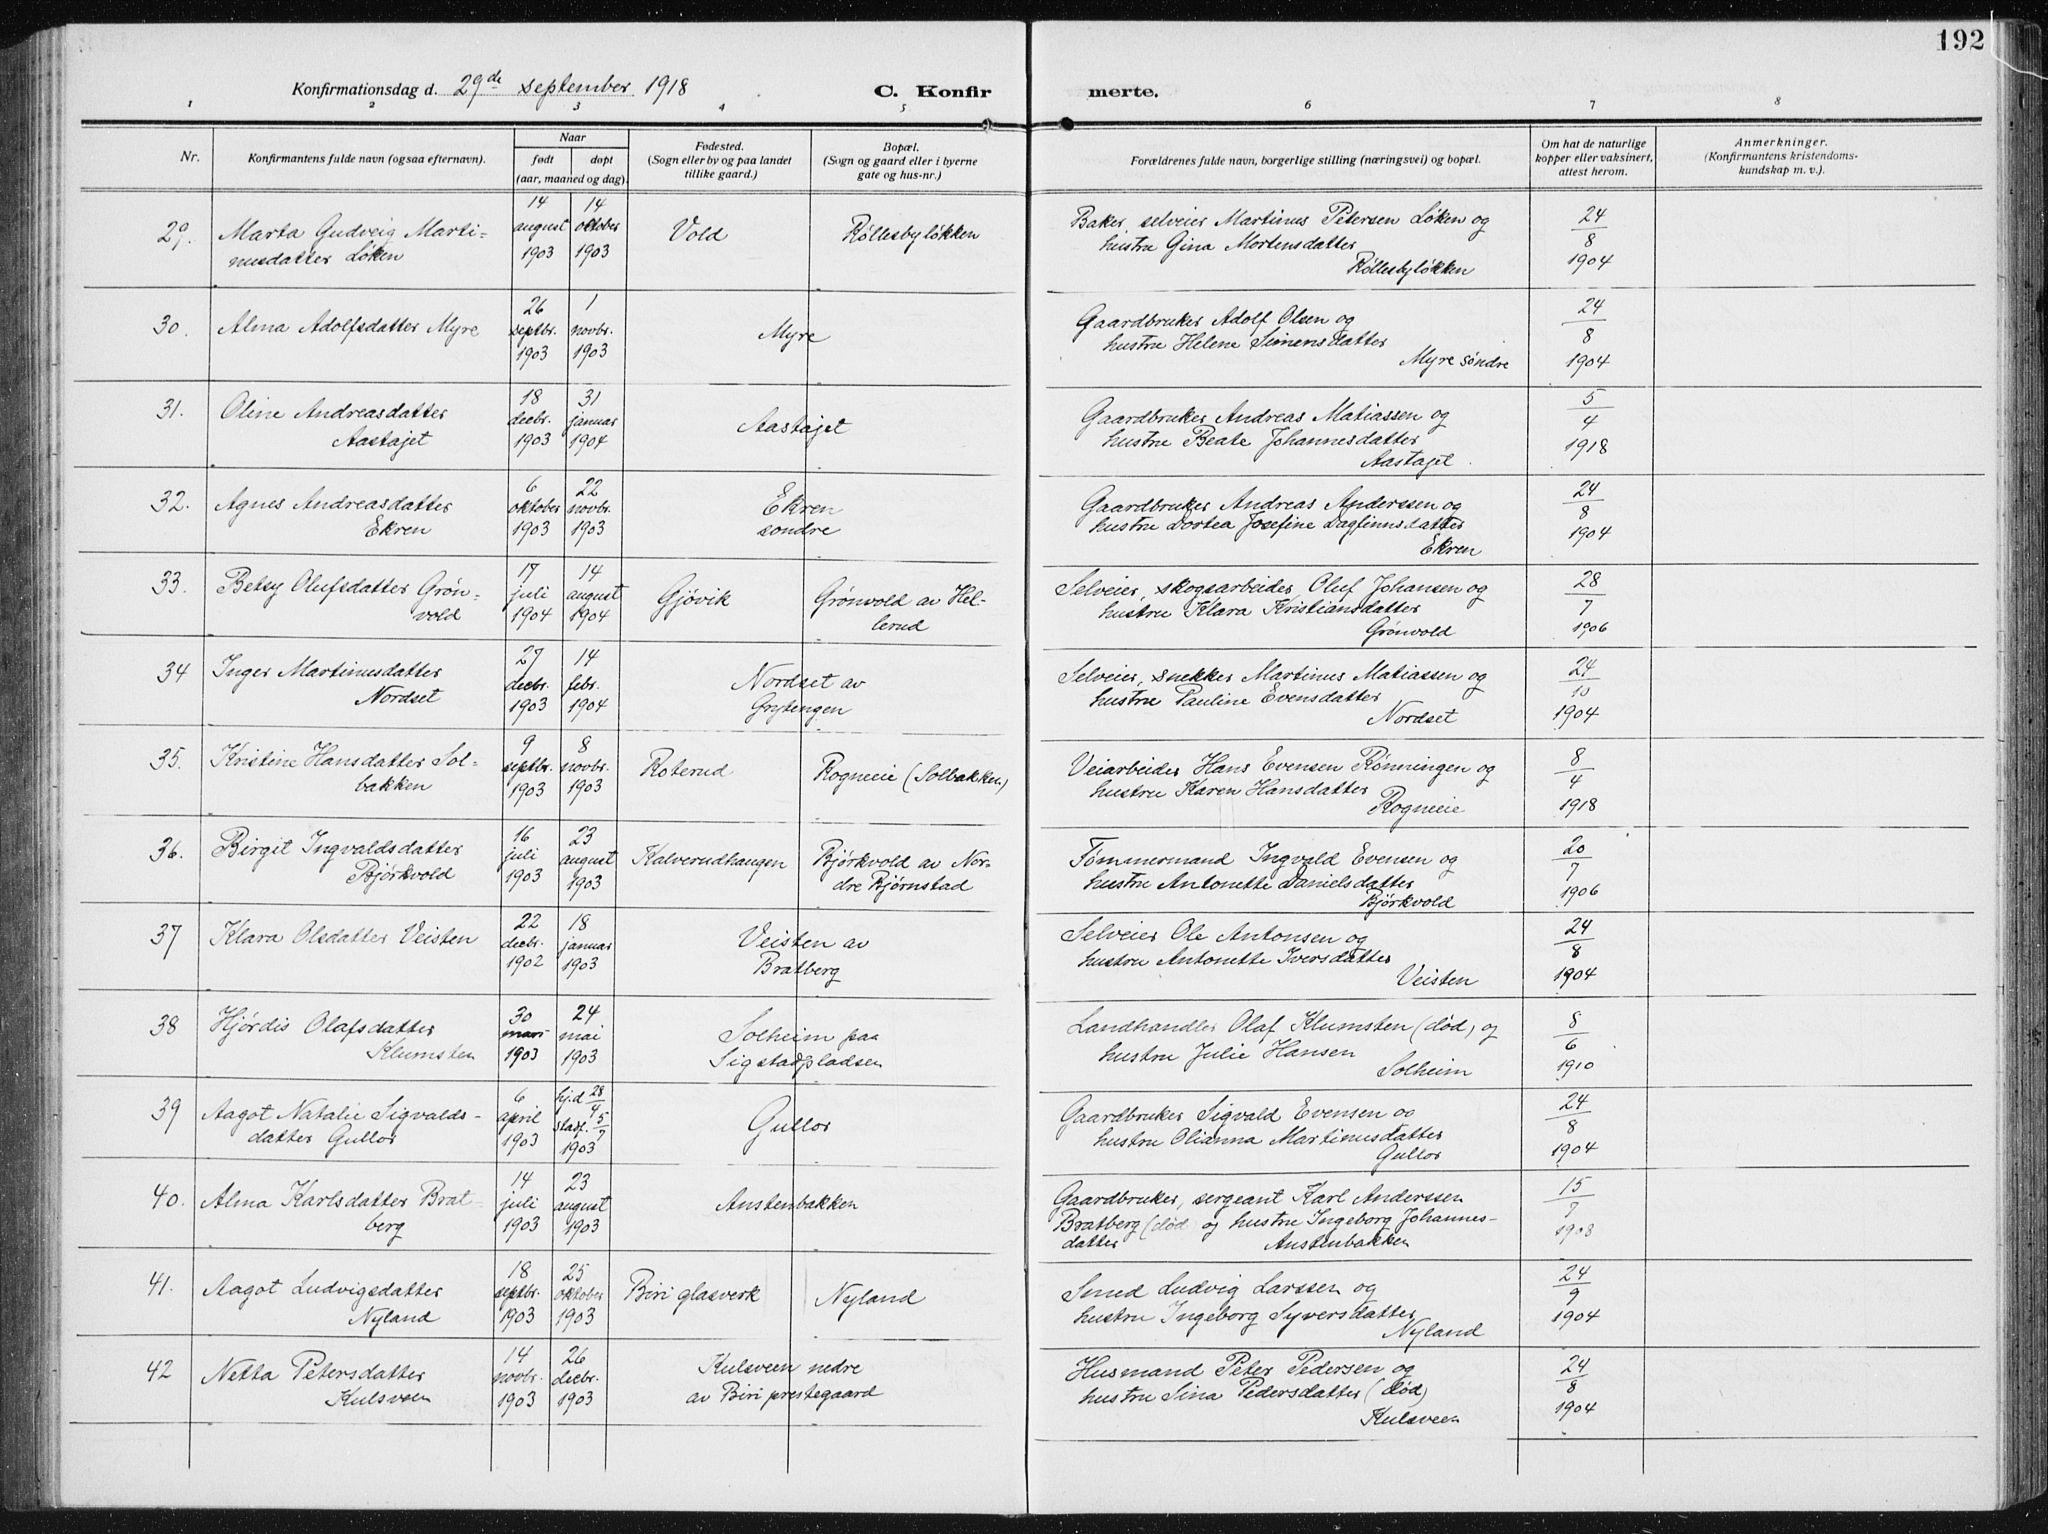 192
Konfirmationsdag d. 29de september 1918
C. Konfir
merte.
1 2 3 4 5 6 7 8
Nr.
Konfirmantens fulde navn (ogsaa efternavn).
Naar
født døpt
(aar, maaned og dag).
Fødested.
(Sogn eller by og paa landet
tillike gaard.)
Bopæl.
(Sogn og gaard eller i byerne
gate og hus-nr.)
Forældrenes fulde navn, borgerlige stilling (næringsvei) og bopæl.
Om hat de naturlige
kopper eller vaksinert,
attest herom.
Anmerkninger.
(Konfirmantens kristendoms-
kundskap m. v.).
29. Marta Gudveig Marti-
nusdatter Løken
14 august 1903
14 oktober 1903
Vold
Røllesbyløkken
Baker, selveier Martinus Petersen Løken og
hustru Gina Mortensdatter
Røllesbyløkken
24/8 1904
30. Alma Adolfsdatter Myre
26 septbr. 1903
1 novbr. 1903
Myre
Gaardbruker Adolf Olsen og
hustru Helene Simensdatter
Myre søndre
24/8 1904
31. Oline Andreasdatter
Aastajet
18 decbr. 1903
31 januar 1904
Aastajet
Gaardbruker Andreas Matiassen og
hustru Beate Johannesdatter
Aastajet.
5/4 1918
32. Agnes Andreasdatter
Ekren
6 oktober 1903
22 novbr. 1903
Ekren
søndre
Gaardbruker Andreas Anderssen og
hustru Dortea Josefine Dagfinnsdatter
Ekren
24/8 1904
33. Betsy Olufsdatter Grøn-
vold
17 juli 1904
14 august 1904
Gjøvik
Grønvold av Hel-
lerud
Selveier, skogsarbeider Oluf Johansen og
hustru Klara Kristiansdatter
Grønvold
28/7 1906
34 Inger Martinusdatter
Nordset
27 decbr. 1903
14 febr. 1904
Nordset av
Grytengen
Selveier, snekker Martinus Matiassen og
hustru Pauline Evensdatter
Nordset
24/10 1904
35. Kristine Hansdatter Sol-
bakken
9 septbr. 1903
8 novbr. 1903
Roterud
Rogneeie (Solbakken)
Veiarbeider Hans Evensen Rønningen og
hustru Karen Hansdatter
Rogneeie
8/4 1918
36. Birgit Ingvaldsdatter
Bjørkvold
16 juli 1903
23 august 1903
Kalverudhaugen
Bjørkvold av Nor-
dre Bjørnstad
Tømmermand Ingvald Evensen og
hustru Antonette Danielsdatter
Bjørkvold
20/7 1906
37 Klara Olsdatter Veisten
22 decbr. 1902
18 januar 1903
Veisten av
Bratberg
Selveier Ole Antonsen og
hustru Antonette Iversdatter
Veisten
24/8 1904
38 Hjørdis Olafsdatter
Klumsten
30 mars 1903
24 mai 1903
Solheim paa
Sigstadpladsen
Landhandler Olaf Klumsten (død) og
hustru Julie Hansen
Solheim
8/6 1910
39 Aagot Natalie Sigvalds-
datter Gullor
6 april 1903
hj.d 28/4 stadf. 5/7 1903
Gullor
Gaardbruker Sigvald Evensen og
hustru Olianna Martinusdatter
Gullor
24/8 1904
40. Alma Karlsdatter Brat-
berg
14 juli 1903
23 august 1903
Anstenbakken
Gaardbruker, sergeant Karl Anderssen
Bratberg (død og hustru Ingeborg Johannes-
datter Anstenbakken
15/7 1908
41. Aagot Ludvigsdatter
Nyland
18 septbr. 1903
25 oktober 1903
Biri glasverk
Nyland
Smed Ludvig Larssen og
hustru Ingeborg Syversdatter
Nyland
24/9 1904
42 Netta Petersdatter
Kulsveen
14 novbr. 1903
26 decbr. 1903
Kulsveen nedre
av Biri prestegaard
Husmand Peter Pedersen og
hustru Sina Pedersdatter (død)
Kulsveen
24/8 1904